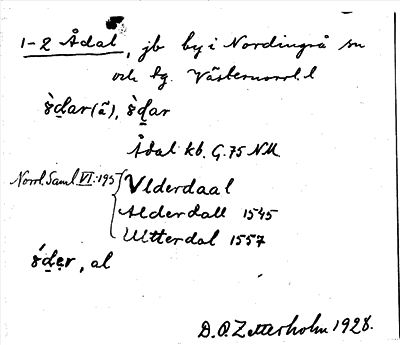 1-2 Ådal, jb by i Nordingrå sn
och tg. Västernorrl. l
Ådal kb. G. 75 N.M.
Norrl. Saml. VI: 195 Vlderdaal
Alderdall 1545
Utterdal 1557
, al
D.O. Zetterholm 1928.